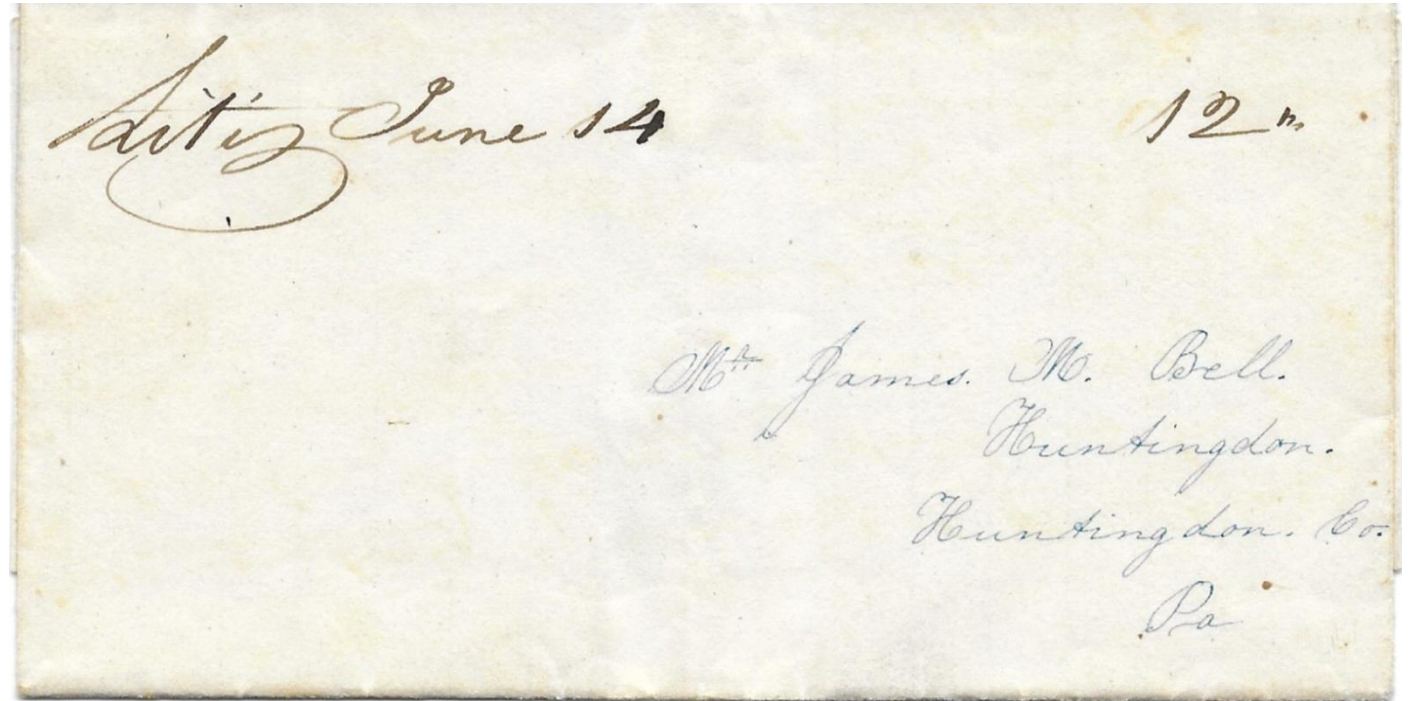 Litiz June 14 12
Mr James. M. Bell.
Huntingdon.
Huntingdon. Co.
Pa